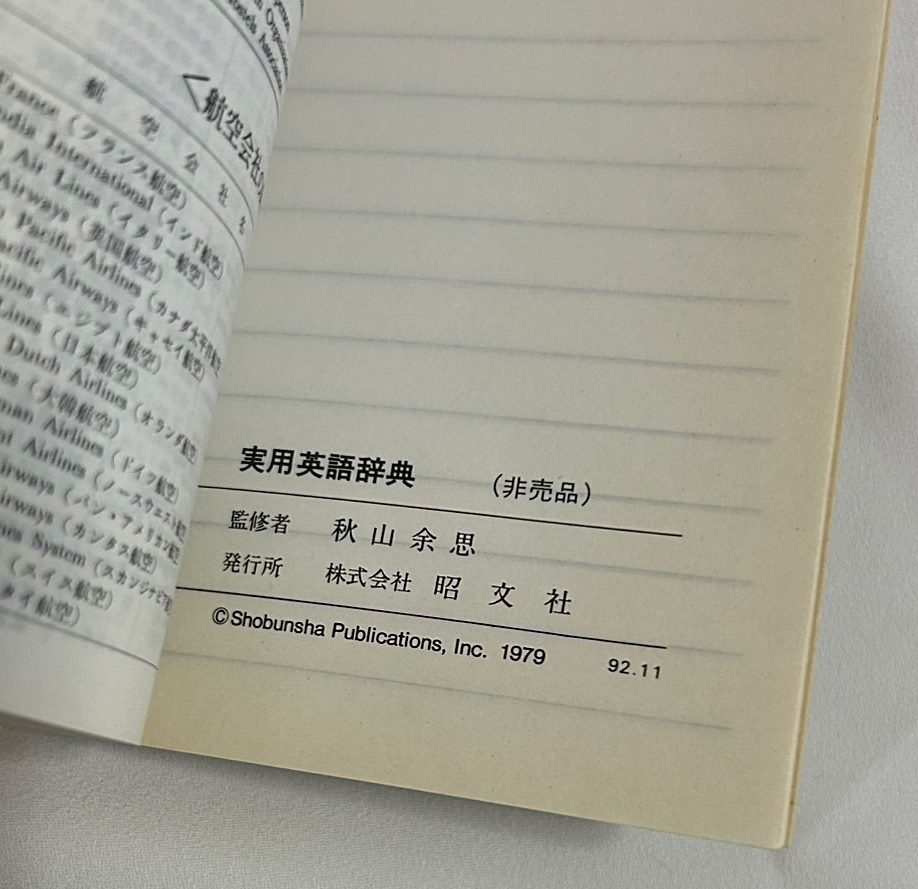 Organi
Association
<航空会社の
航空会社名
France (フランス航空)
India International (インド航空)
Air Lines (イタリー航空)
Airways (英国航空)
Pacific Airlines (カナダ太平洋航空
Pacific Airways (キャセイ航空)
ines (エジプト航空)
Lines (日本航空)
Dutch Airlines (オランダ航空
nes (大韓航空)
man Airlines (ドイツ航空)
st Airlines (ノースウエスト航空
irways (パン・アメリカン航空
irways (カンタス航空)
nes System (スカンジナビア航
(スイス航空)
タイ航空)
実用英語辞典 (非売品)
監修者 秋山余思
発行所 株式会社 昭文社
©Shobunsha Publications, Inc. 1979 92.11